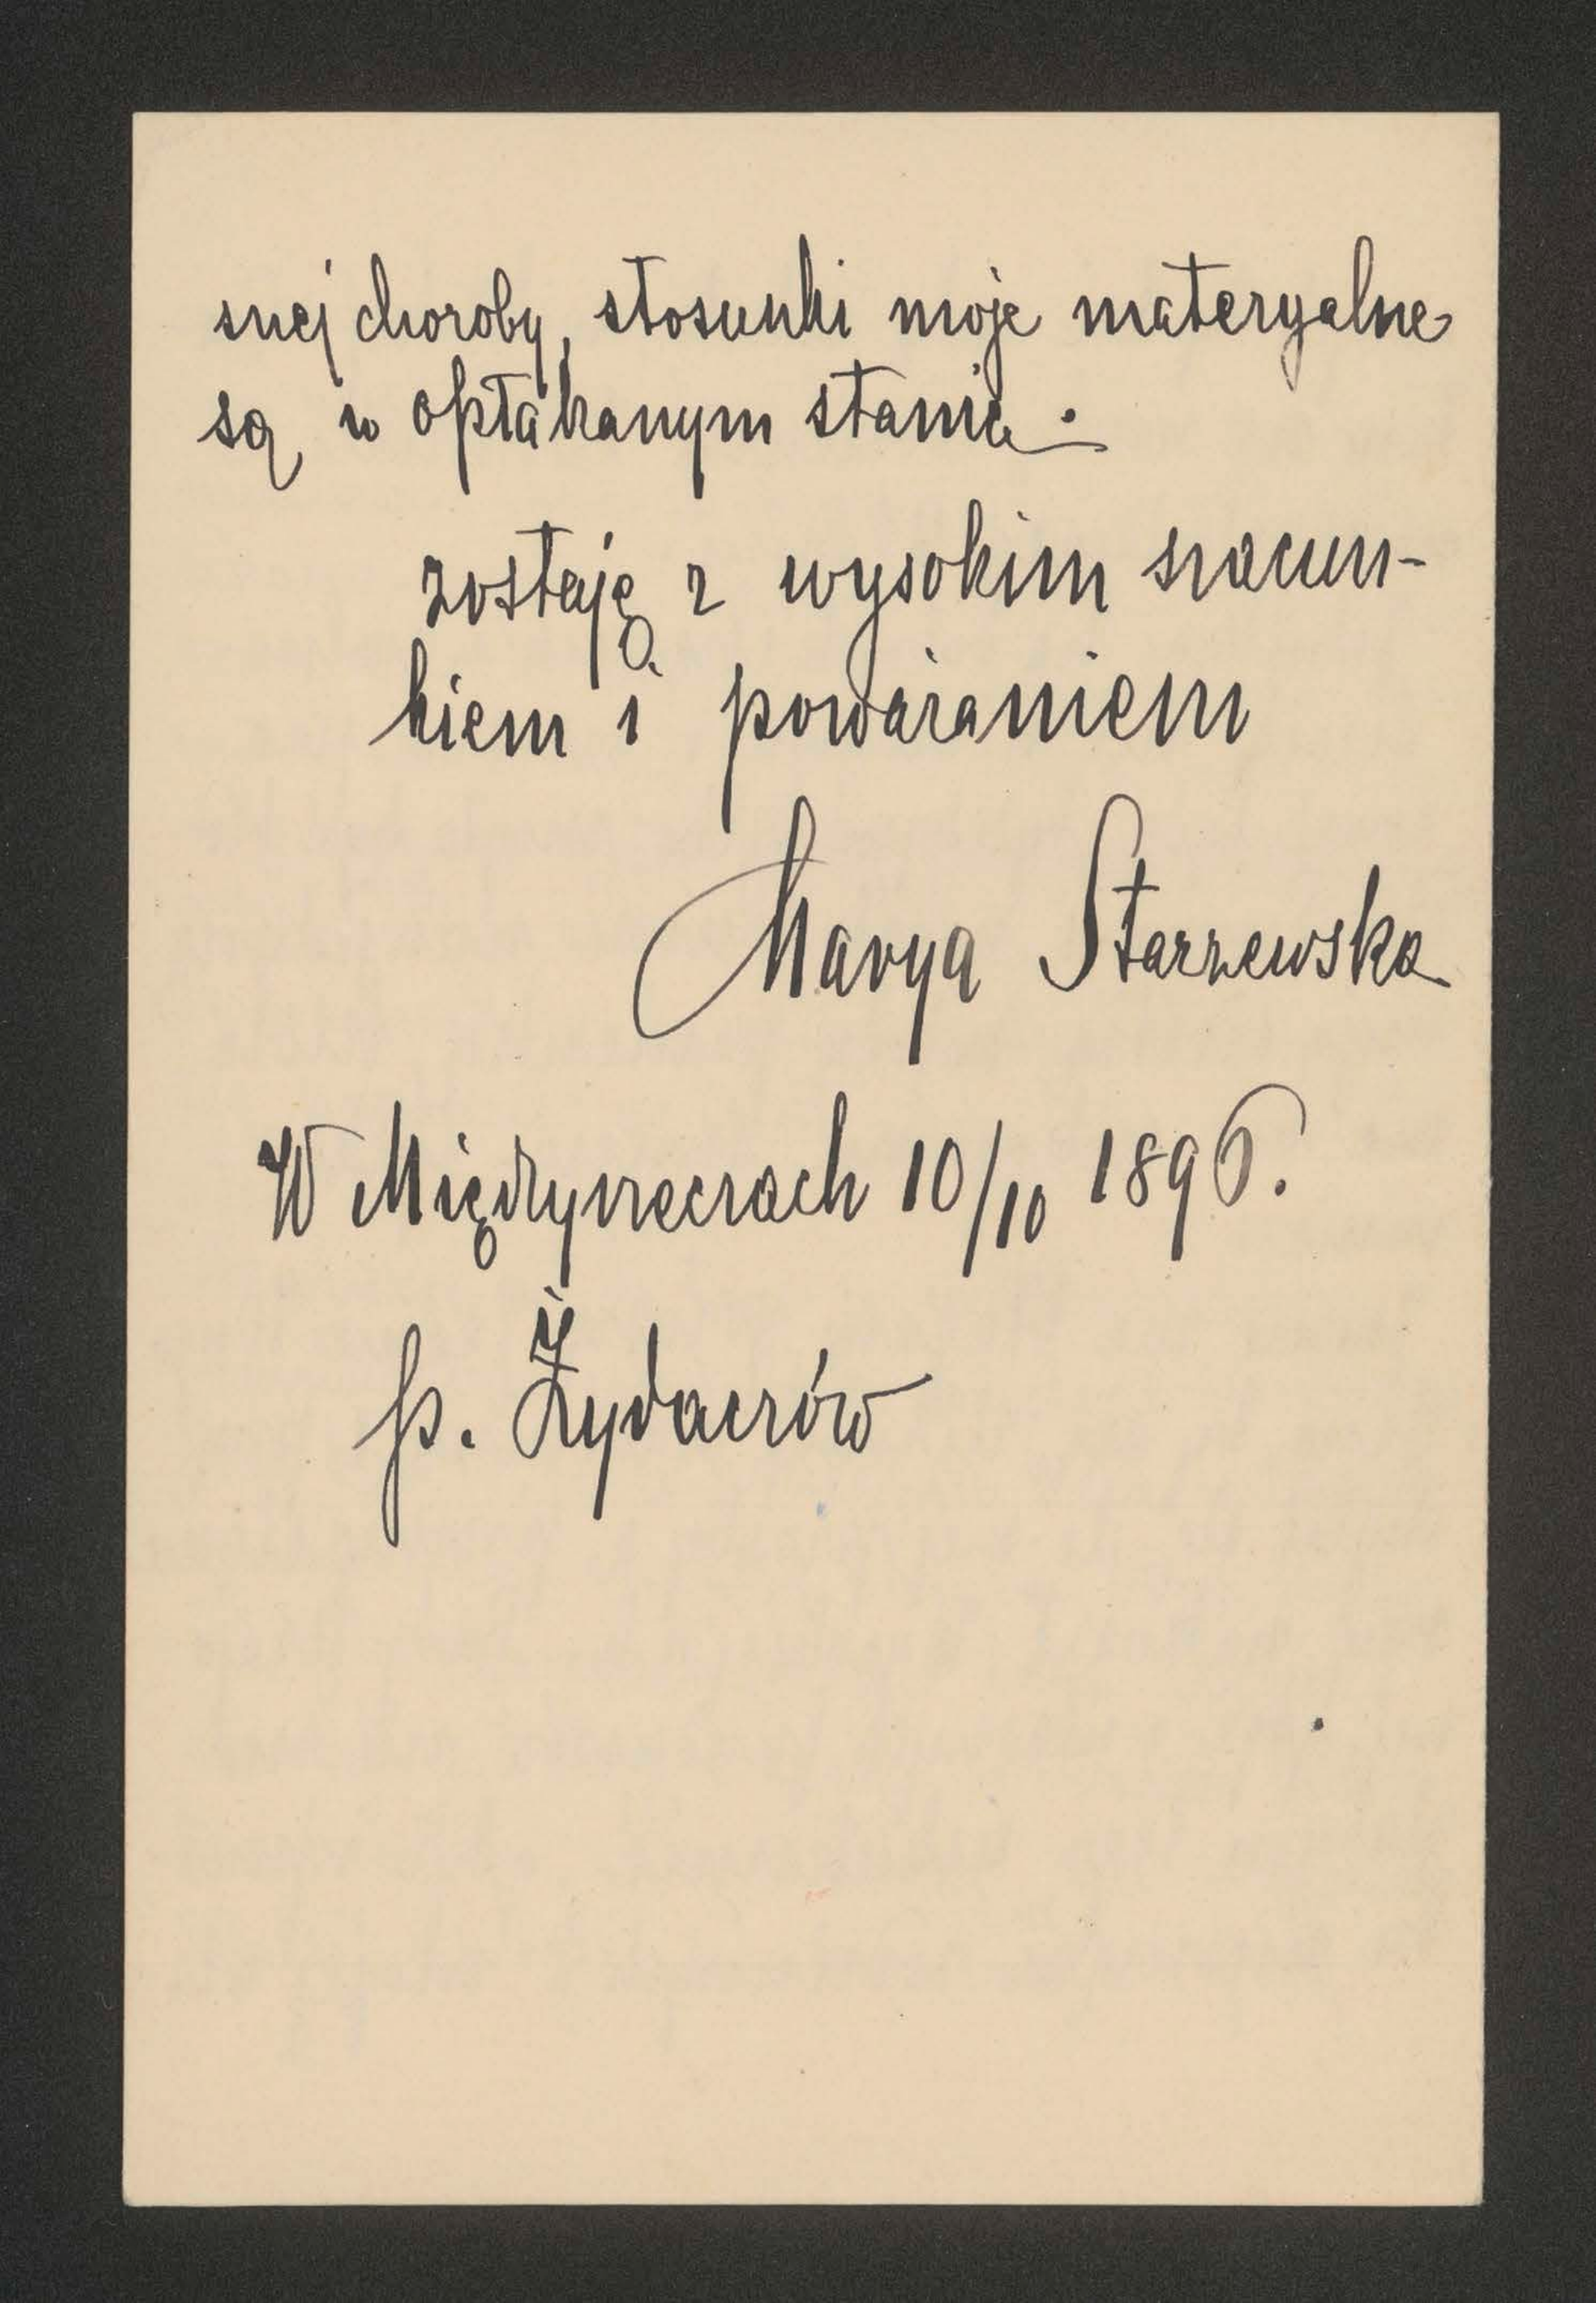 snej choroby, stosunki moje materyalne
są w opłakanym stanie.
zostaję z wysokim szacun-
kiem i poważaniem
Marya Starzewska
W Międzyrzeczach 10/10 1896.
p. Żydaczów